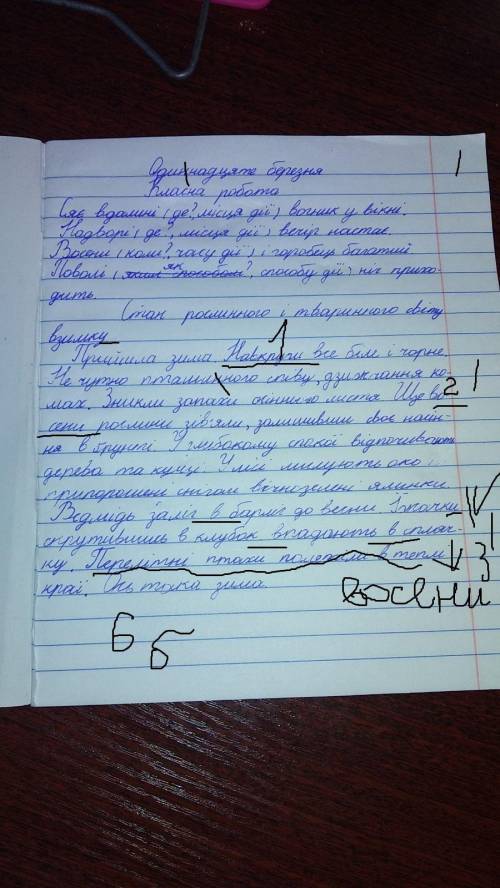 Одинадцяте березня
Класна робота
Сяє вдалині (де?, місця дії) вогник у вікні.
Надворі (де?, місця дії) вечір настає.
Восени (коли?, часу дії) і горобець багатий.
Поволі (яким способом? як?, способу дії) ніч прихо-
дить.
Стан рослинного і тваринного світу
взимку
Прийшла зима. Навкруги все біле і чорне.
Не чутно пташиного співу, дзижчання ко-
мах. Зникли запахи осіннього листя. Ще во-
сени рослини зів'яли, залишивши своє насін-
ня в ґрунті. У глибокому спокої відпочивають
дерева та кущі. У лісі милують око
припорошені снігом вічнозелені ялинки.
Ведмідь заліг в барліг до весни. Їжачки
скрутившись в клубок впадають в спляч-
ку. Перелітні птахи полетіли в теплі
краї. Ось така зима.
1
1
2 1
V
1
3
восени
6 б